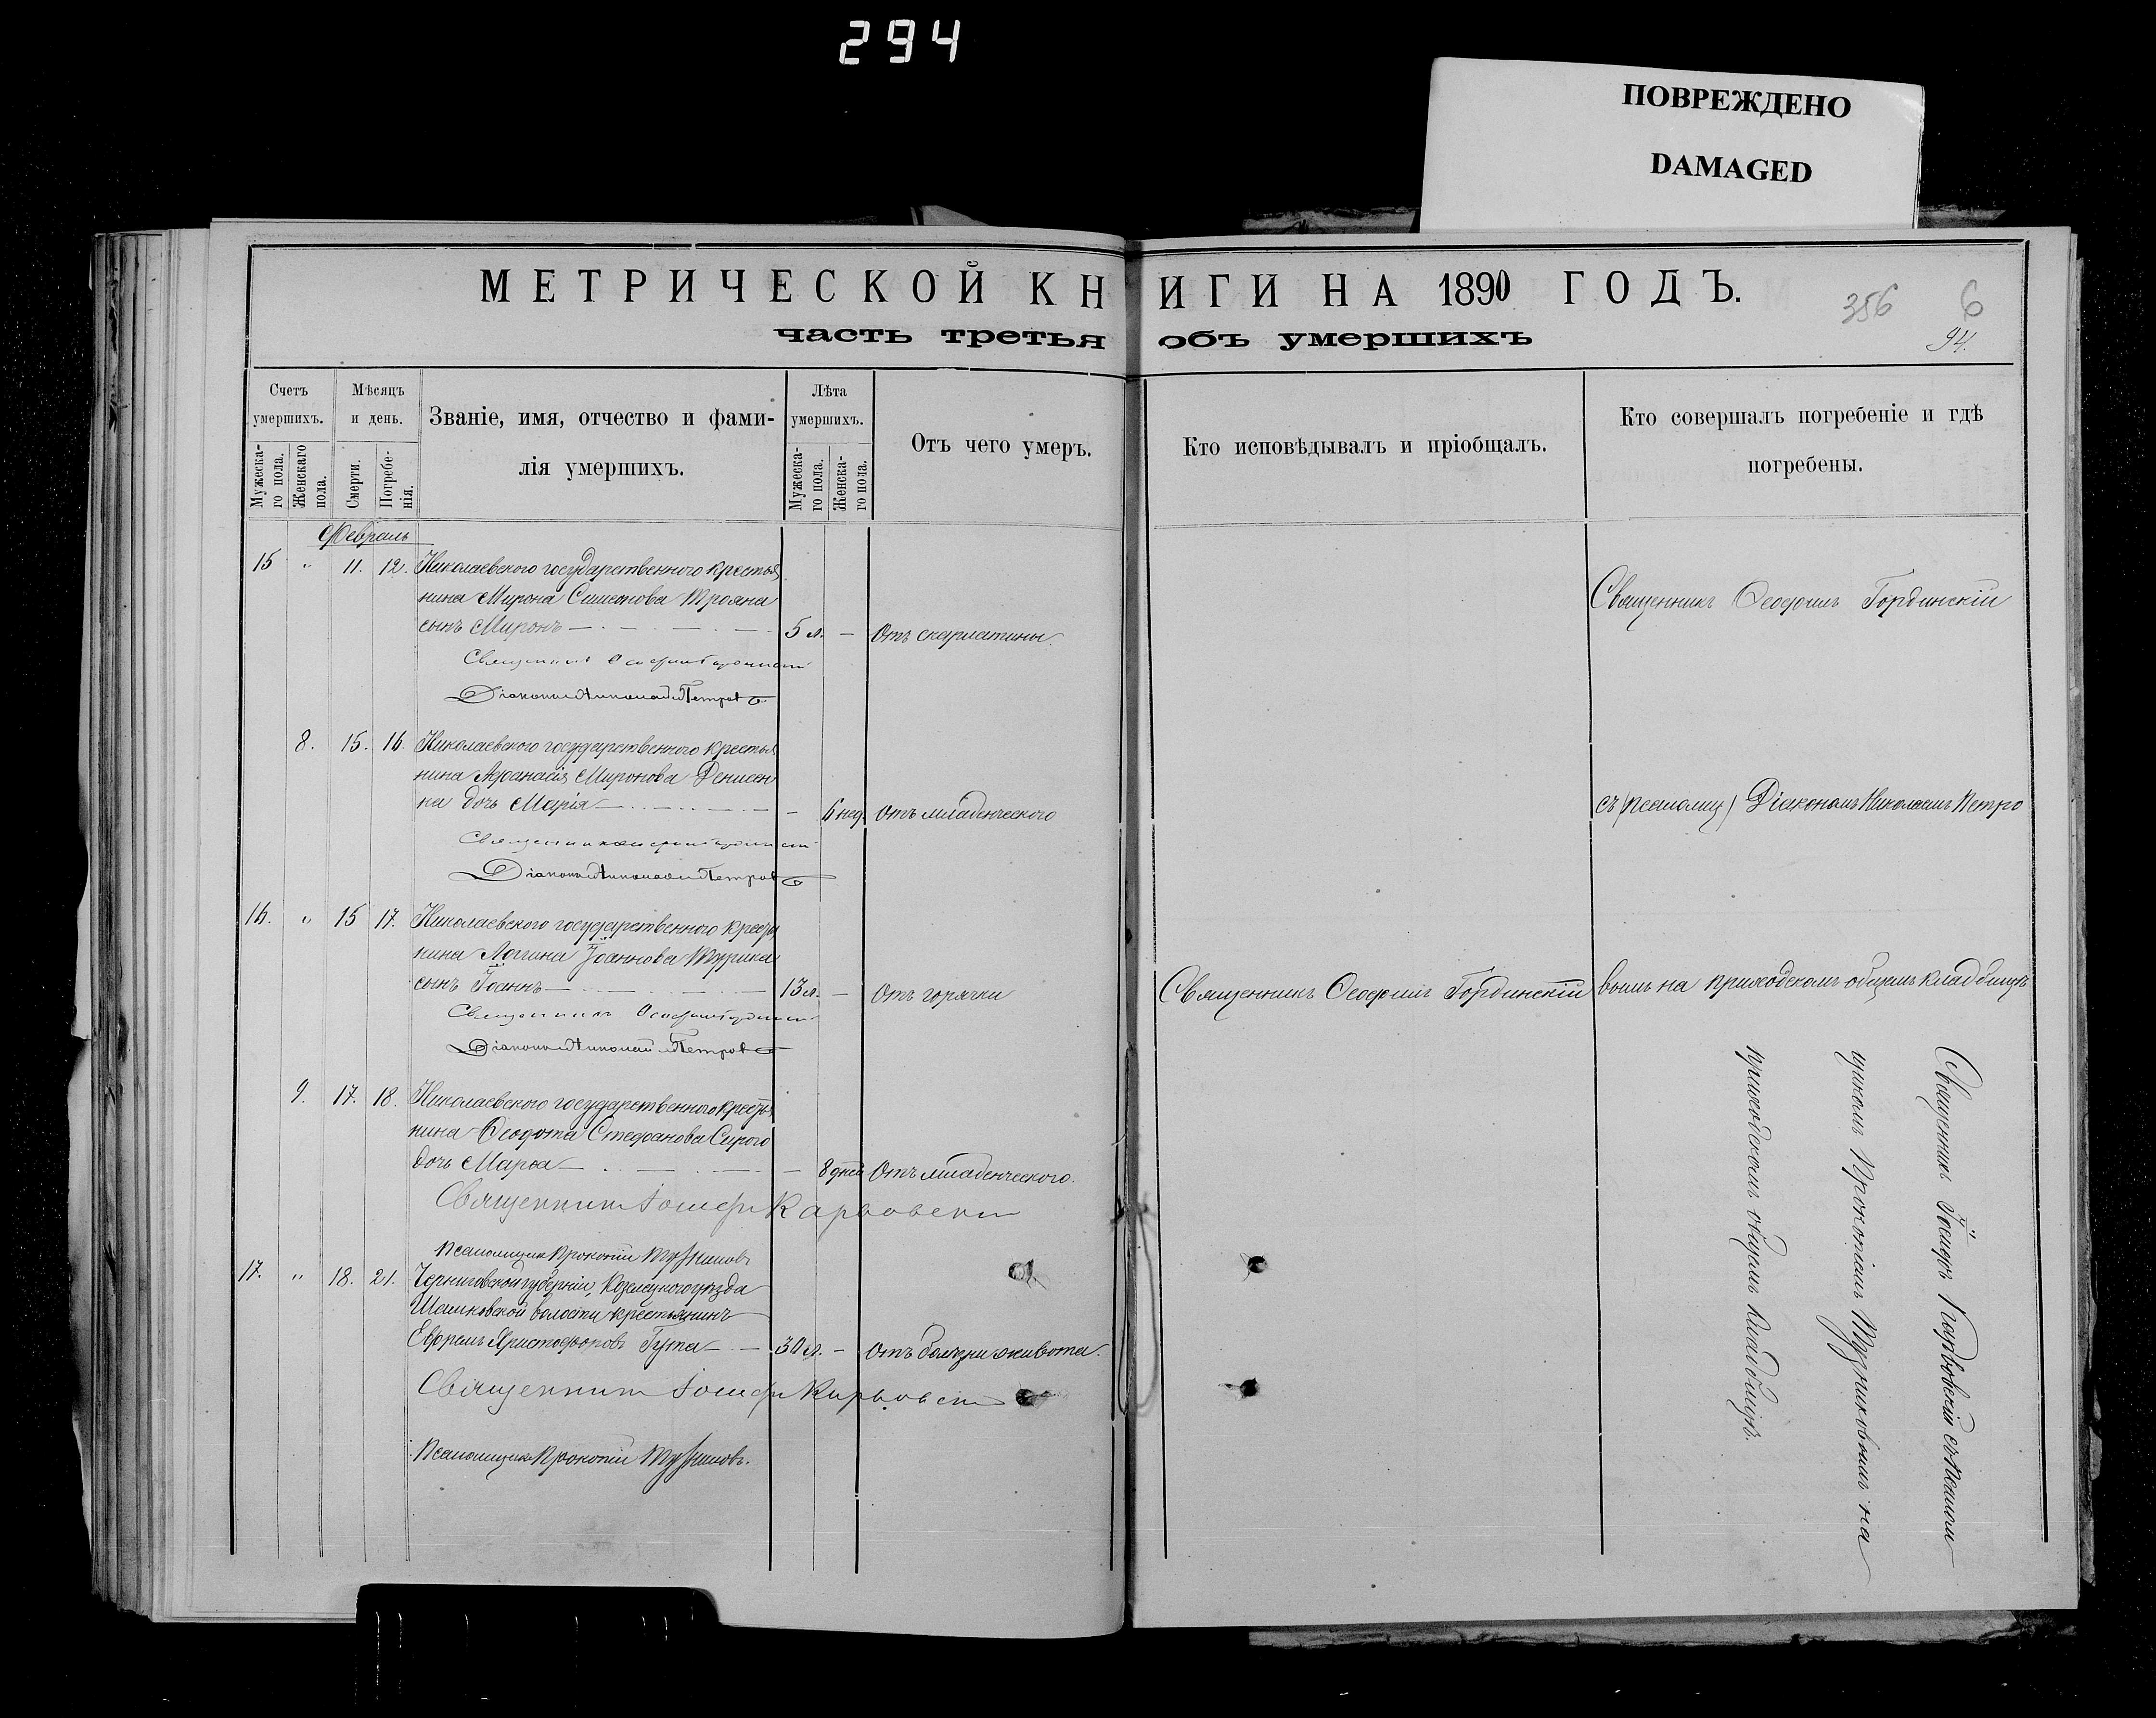 294
ПОВРЕЖДЕНО
DAMAGED
МЕТРИЧЕСКОЙ КНИГИ НА 1890 ГОДЪ.
356
6
94.
часть третья объ умершихъ
Счетъ умершихъ.
Мѣсяцъ и день.
Званіе, имя, отчество и фами-
лія умершихъ.
Лѣта умершихъ.
Отъ чего умеръ.
Кто исповѣдывалъ и пріобщалъ.
Кто совершалъ погребеніе и гдѣ
погребены.
Мужеска-
го пола.
Женскаго
пола.
Смерти.
Погребе-
нія.
Мужеска-
го пола.
Женска-
го пола.
Февраль
15 " 11. 12. Николаевского государственного крестья
нина Мирона Симеонова Трояна
сынъ Миронъ 5 л. — Отъ скарлатины.
Священникъ Ѳеофилъ Гординскій
Діаконъ Николай Петровъ
8. 15. 16. Николаевского государственного крестья
нина Аѳанасія Миронова Денисен
ка дочь Марія — 6 нед. Отъ младенческого
Священникъ Ѳеофилъ Гординскій
Діаконъ Николай Петровъ
16. " 15 17. Николаевского государственного крестья
нина Логина Іоаннова Турика
сынъ Іоаннъ 13 л. — Отъ горячки
Священникъ Ѳеофилъ Гординскій
Діаконъ Николай Петровъ
9. 17. 18. Николаевского государственного крестья
нина Ѳеодота Стефанова Сирого
дочь Марѳа — 8 дней Отъ младенческого.
Священникъ Іосифъ Карвовскій
Псаломщикъ Прокопій Тузниковъ
17. " 18. 21. Черниговской губерніи, Козелецкого уѣзда
волости крестьянинъ
Ефремъ Христофоровъ Гута 30 л. — Отъ болѣзни живота.
Священникъ Іосифъ Карвовскій
Псаломщикъ Прокопій Тузниковъ.
Священникъ Ѳеофилъ Гординскій
Священникъ Ѳеофилъ Гординскій
съ (псаломщ) Діакономъ Николаемъ Петро
вымъ на приходскомъ общемъ кладбищѣ
Священникъ Іосифъ Карвовскій съ псалом
щикомъ Прокопіемъ Тузниковымъ на
приходскомъ общемъ кладбищѣ.